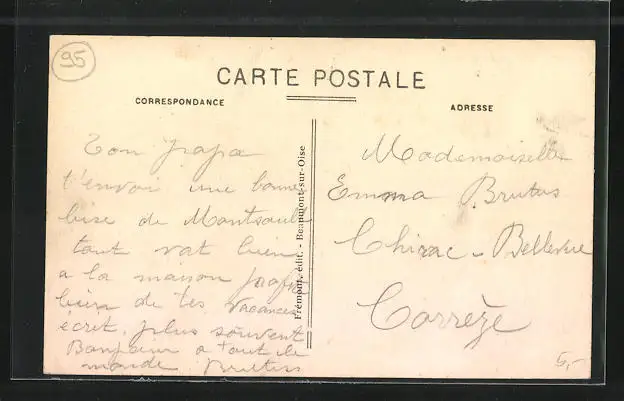 95
CARTE POSTALE
CORRESPONDANCE
ADRESSE
Ton papa
t'envoi une bonne
bise de Montsoult
tout vat bien
a la maison profite
bien de tes vacances
écrit plus souvent
Bonjour a tout le
monde Brutus
Frémont, édit. - Beaumont-sur-Oise
Mademoiselle
Emma Brutus
Chirac - Bellevue
Corrèze
5,-